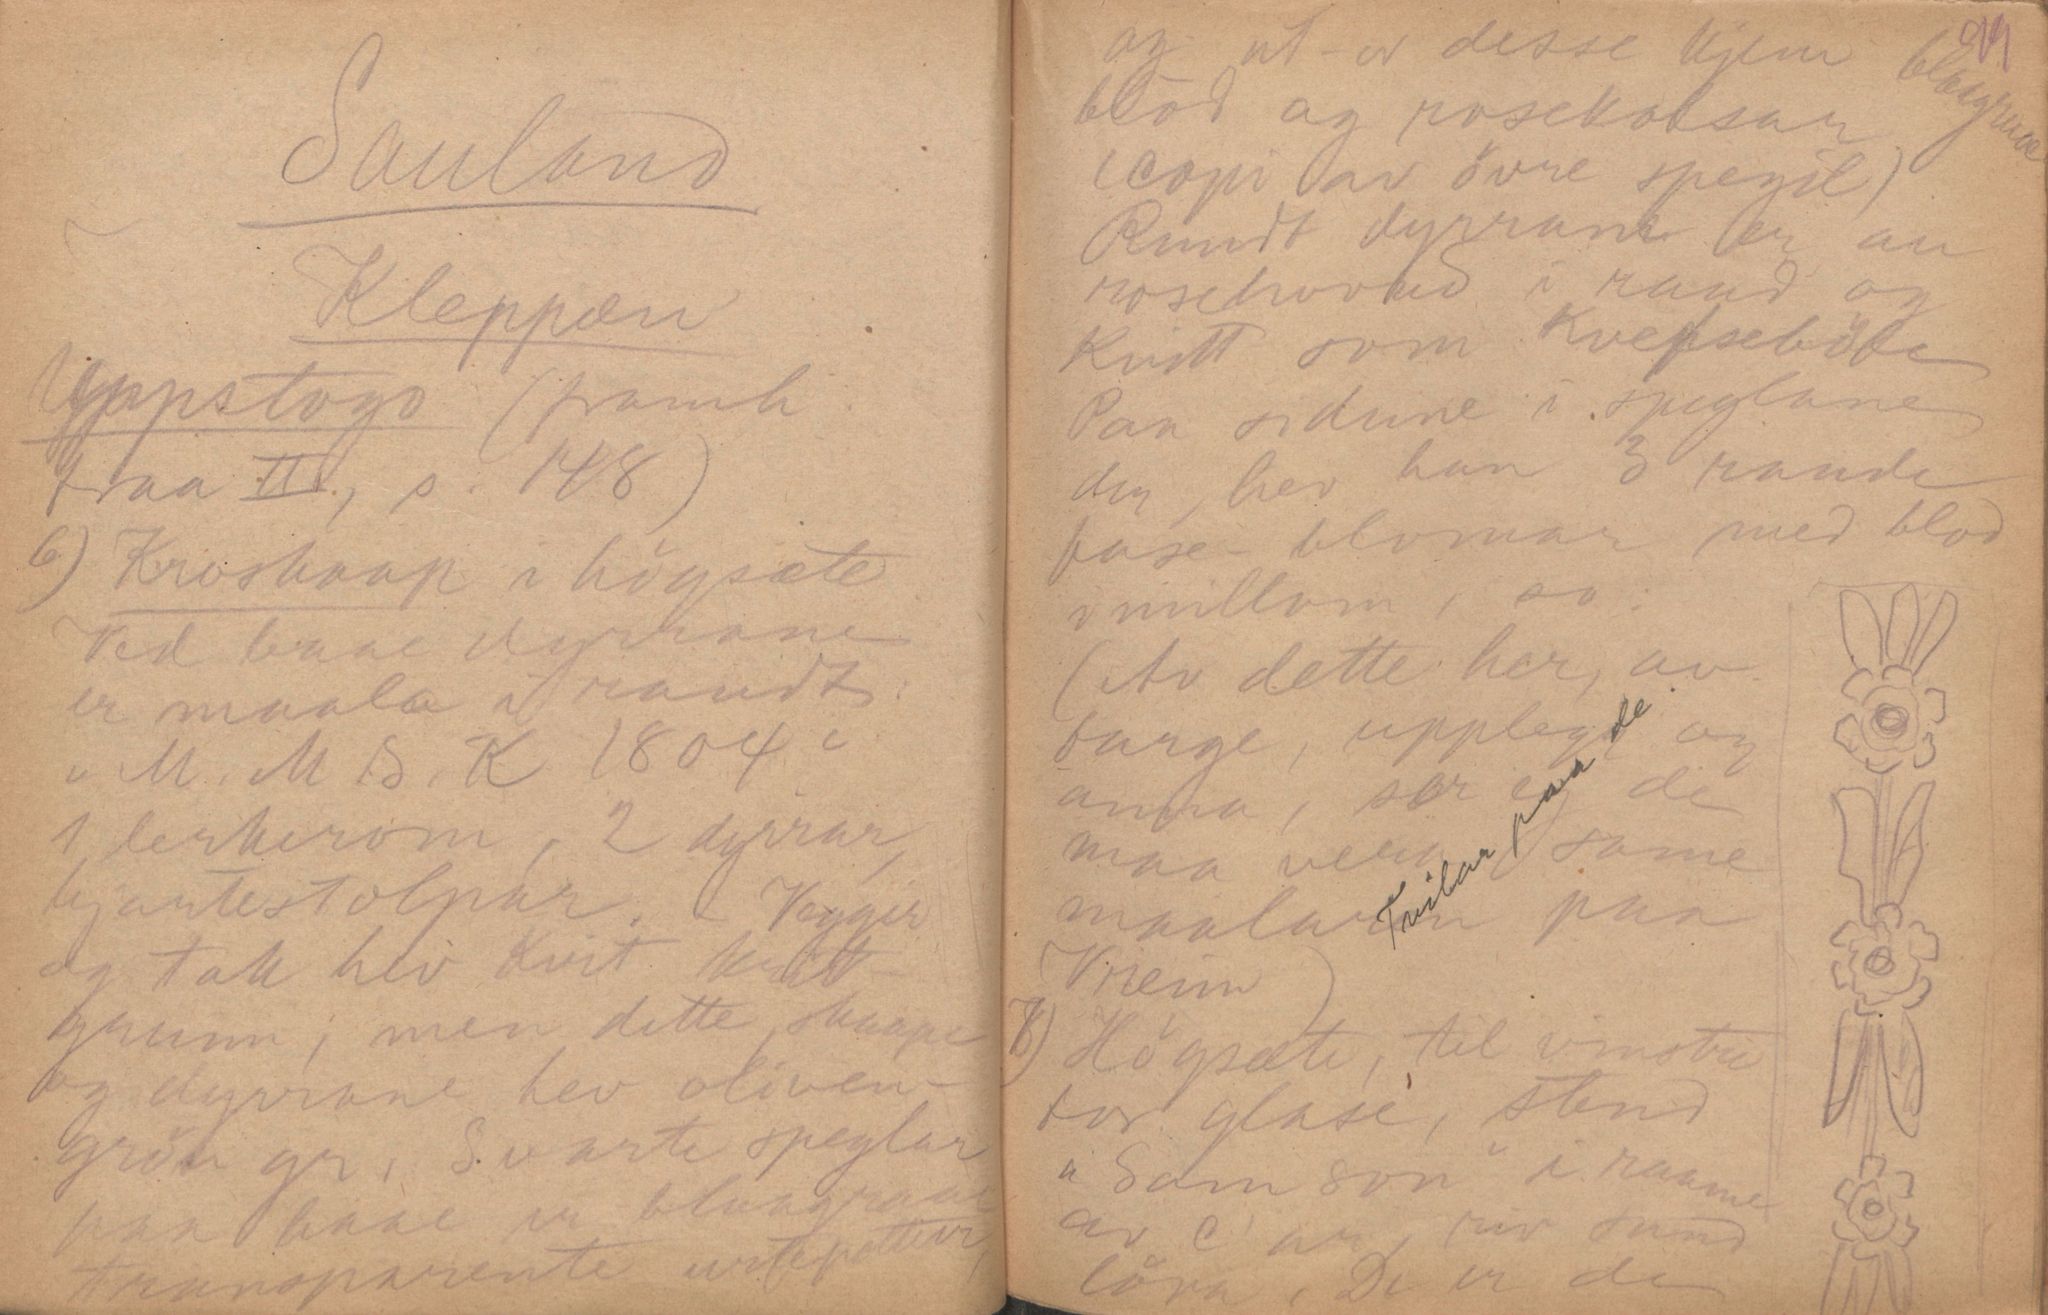 Sauland
Kleppen
Uppstogo (framh.
fraa III, s. 148)
6) Kroskaap i högsæte
Ved baae dyrrane
er maala i raudt:
"M. M S. K 1804"
1 berherom, 2 dyrrar,
hjartestolpar. - Vegger
og tak hev kvit kvit-
grunn, men dette skaape
og dyrrane hev oliven-
grön gr. Svarte speglar
paa baae er blaagraae
transparente urtepotter,
99
og ut-or desse kjem blaagraae
blod og rosekobsar
(copi av övre spegil)
Rundt dyrrane er au
rosehovud i raud og
kvitt som kvefseböle
Paa sidune i speglane
der, hev han 3 raude
fuse-blomar med blod
imillom, so:
(Av dette her, av
farge, upplegg og
anna, ser eg de
maa vera same
maalaren paa
Vreim)
Tvilar paa de.
7) Högsæte, til vinstre
for glase, stend
"Samson" i raame
av C'ar, riv sund
löva. De er de